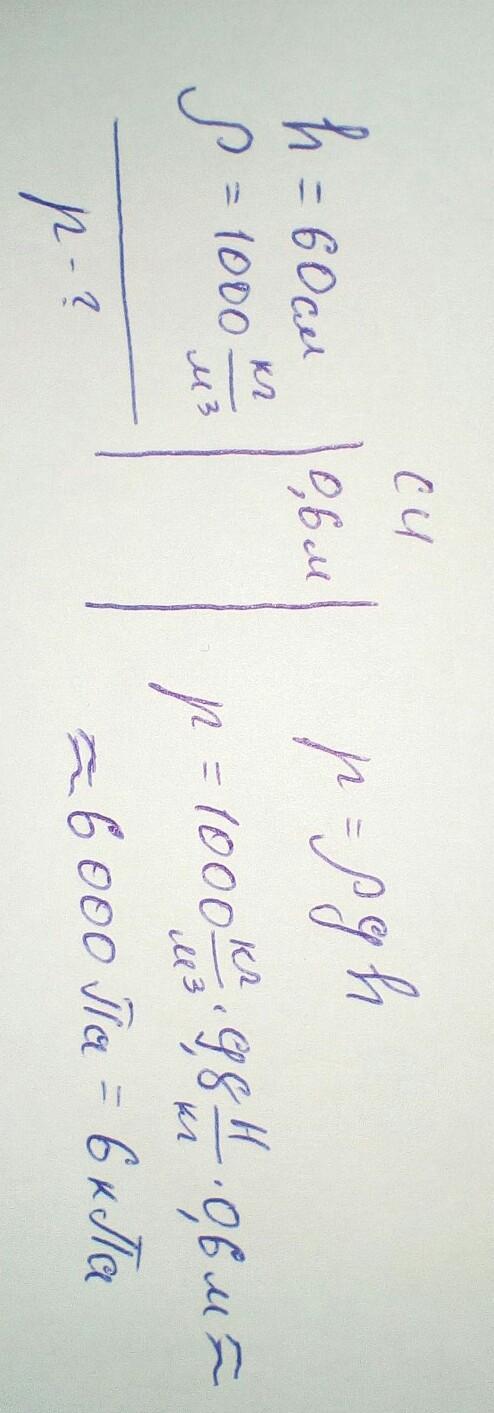 СИ
h = 60см | 0,6м
ρ = 1000 кг/м3
p - ?
p = ρgh
p = 1000 кг/м3 · 9,8 Н/кг · 0,6м ≈
≈ 6000 Па = 6 кПа